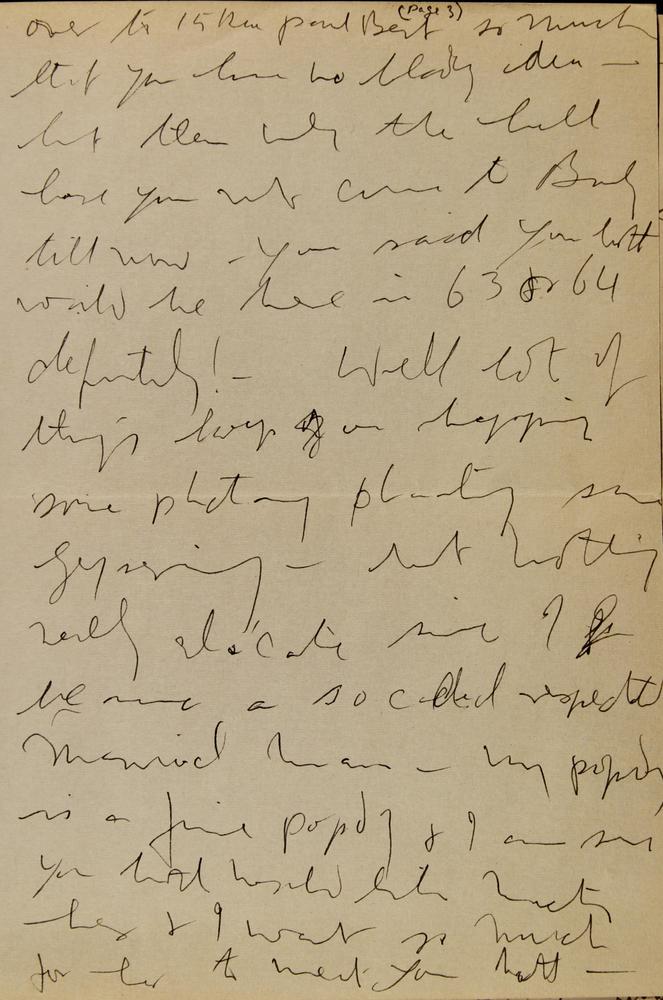 (Page 3)
over to so much
that you have no bloody idea —
but then why the hell
have you not come to
till now – you said you both
would be here in 63 or 64
definitely! – Well lot of
things keep on happening
some photoing planting some
– but nothing
really since I
became a so called respected
married man – my popsy
is a fine popsy & I am sure
you both would like meeting
her & I want so much
for her to meet you both —